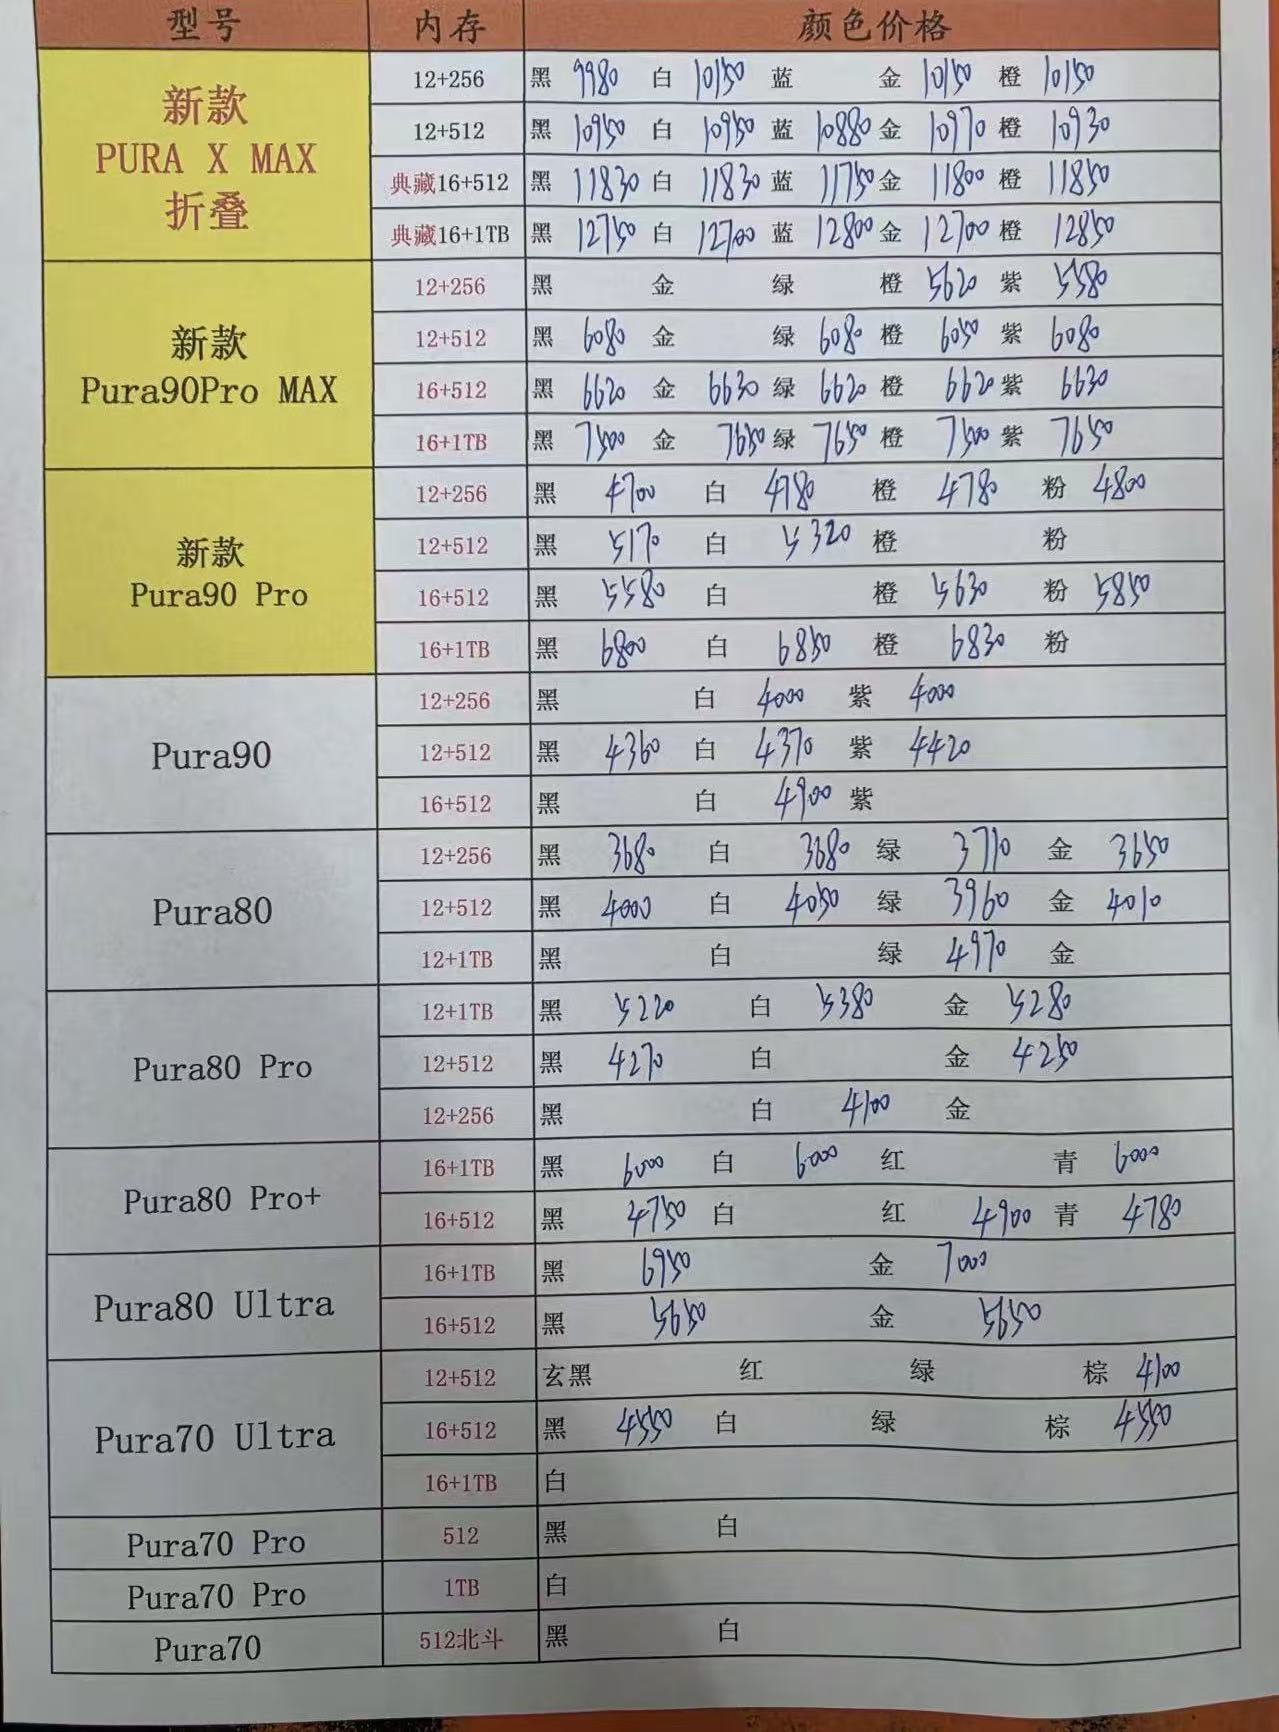 型号 内存 颜色价格
新款
PURA X MAX
折叠
12+256 黑 9980 白 10150 蓝 金 10150 橙 10150
12+512 黑 10950 白 10950 蓝 10880 金 10970 橙 10930
典藏16+512 黑 11830 白 11830 蓝 11750 金 11800 橙 11850
典藏16+1TB 黑 12750 白 12700 蓝 12800 金 12700 橙 12850
新款
Pura90Pro MAX
12+256 黑 金 绿 橙 5620 紫 5580
12+512 黑 6080 金 绿 6080 橙 6050 紫 6080
16+512 黑 6620 金 6630 绿 6620 橙 6620 紫 6630
16+1TB 黑 7500 金 7650 绿 7650 橙 7500 紫 7650
新款
Pura90 Pro
12+256 黑 4700 白 4780 橙 4780 粉 4800
12+512 黑 5170 白 5320 橙 粉
16+512 黑 5580 白 橙 5630 粉 5850
16+1TB 黑 6800 白 6850 橙 6830 粉
Pura90
12+256 黑 白 4000 紫 4000
12+512 黑 4360 白 4370 紫 4420
16+512 黑 白 4900 紫
Pura80
12+256 黑 3680 白 3680 绿 3710 金 3650
12+512 黑 4000 白 4050 绿 3960 金 4010
12+1TB 黑 白 绿 4970 金
Pura80 Pro
12+1TB 黑 5220 白 5380 金 5280
12+512 黑 4270 白 金 4250
12+256 黑 白 4100 金
Pura80 Pro+
16+1TB 黑 6000 白 6000 红 青 6000
16+512 黑 4750 白 红 4900 青 4780
Pura80 Ultra
16+1TB 黑 6950 金 7000
16+512 黑 5650 金 5650
Pura70 Ultra
12+512 玄黑 红 绿 棕 4100
16+512 黑 4550 白 绿 棕 4550
16+1TB 白
Pura70 Pro 512 黑 白
Pura70 Pro 1TB 白
Pura70 512北斗 黑 白